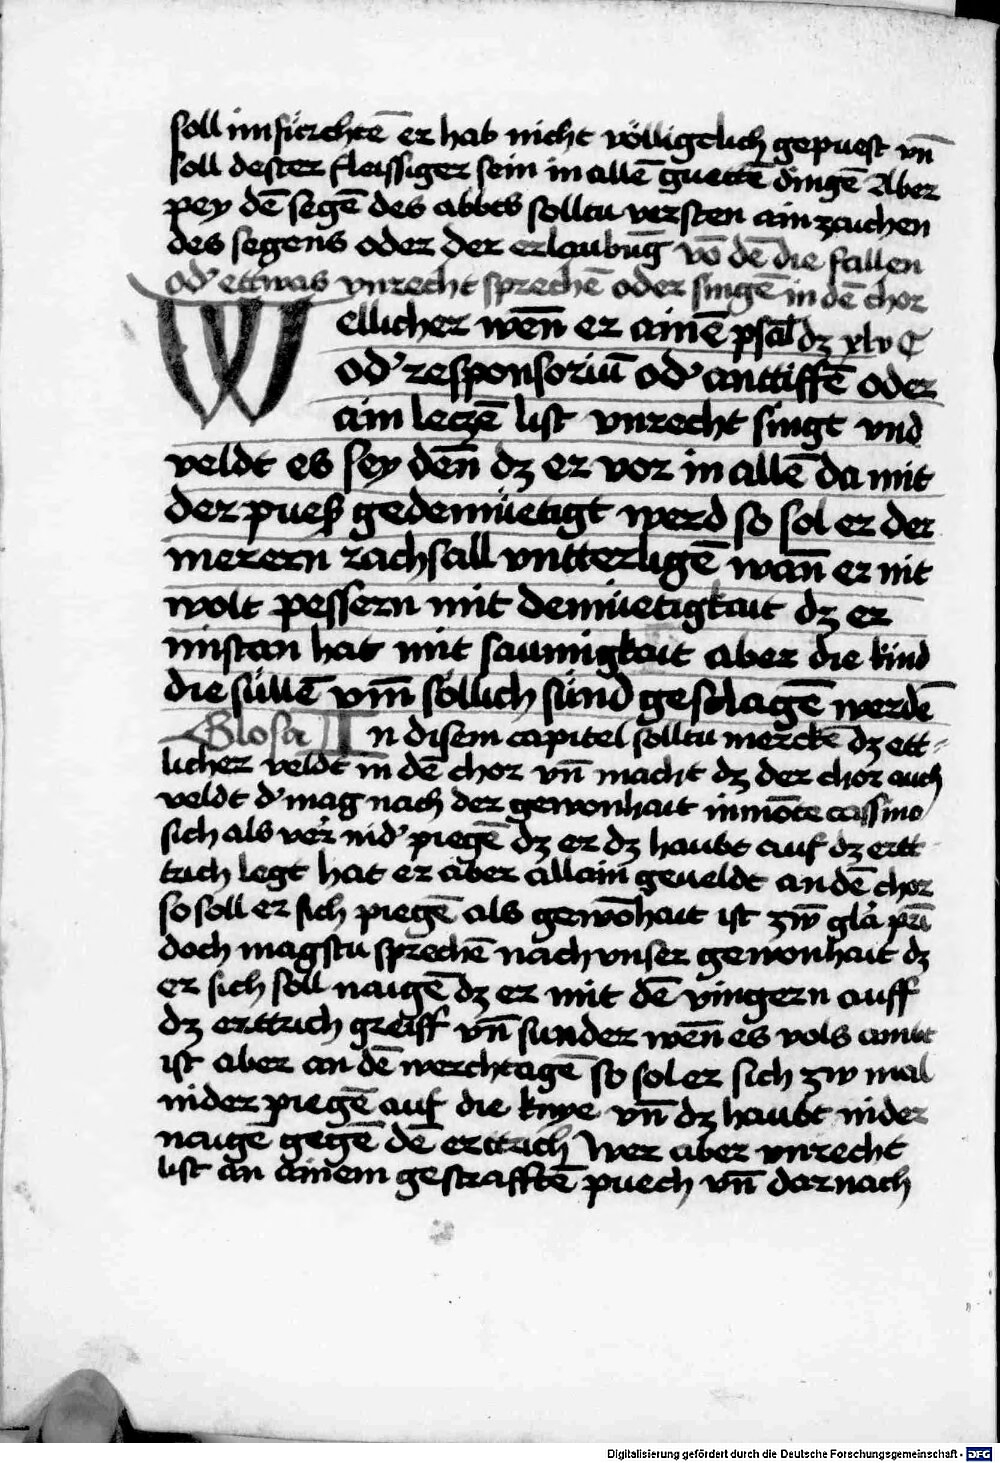 soll im fürchtē er hab nicht völligclich gepuest vn̄
soll dester fleissiger sein in allē guettē dingē Aber
pey dē segē des abbts solltu versten ain zaichen
des segens oder der erlaubūg vō dē die fallen
od' ettwas vnrecht sprechē oder singē in dē chor
Wellicher wēn er ainē psal̄ dz xlv C
od' responsoriū od' anttiffē oder
ain leczē list vnrecht singt vnd
veldt es sey dēn dz er vor in allē da mit
der puess gedemüetigt werd so sol er der
merern rachsall vntterligē wān er nit
wolt pessern mit demüetigkait dz er
mistan hat mit saumigkait aber die kind
die süllē vm̄ söllich sünd geslagē werdē
Glosa In disem capitel solltu merckē dz ett-
licher veldt in dē chor vn̄ macht dz der chor auch
veldt d' mag nach der gewonhait in mōte cassino
sich als ver nid' piegē dz er dz haubt auf dz ertt
trich legt hat er aber allain geueldt an dē chor
so soll er sich piegē als gewōhait ist zw̄ gla pri
doch magstu sprechē nach vnser gewonhait dz
er sich soll naigē dz er mit dē vingern auff
dz erttrich greiff vn̄ sunder wēn es vols ambt
ist aber an dē werchtagē so sol er sich zw mal
nider piegē auf die knye vn̄ dz haubt nider
naigē gegē dē erttrich Wer aber vnrecht
list an ainem gestrafftē puech vn̄ darnach
Digitalisierung gefördert durch die Deutsche Forschungsgemeinschaft - DFG